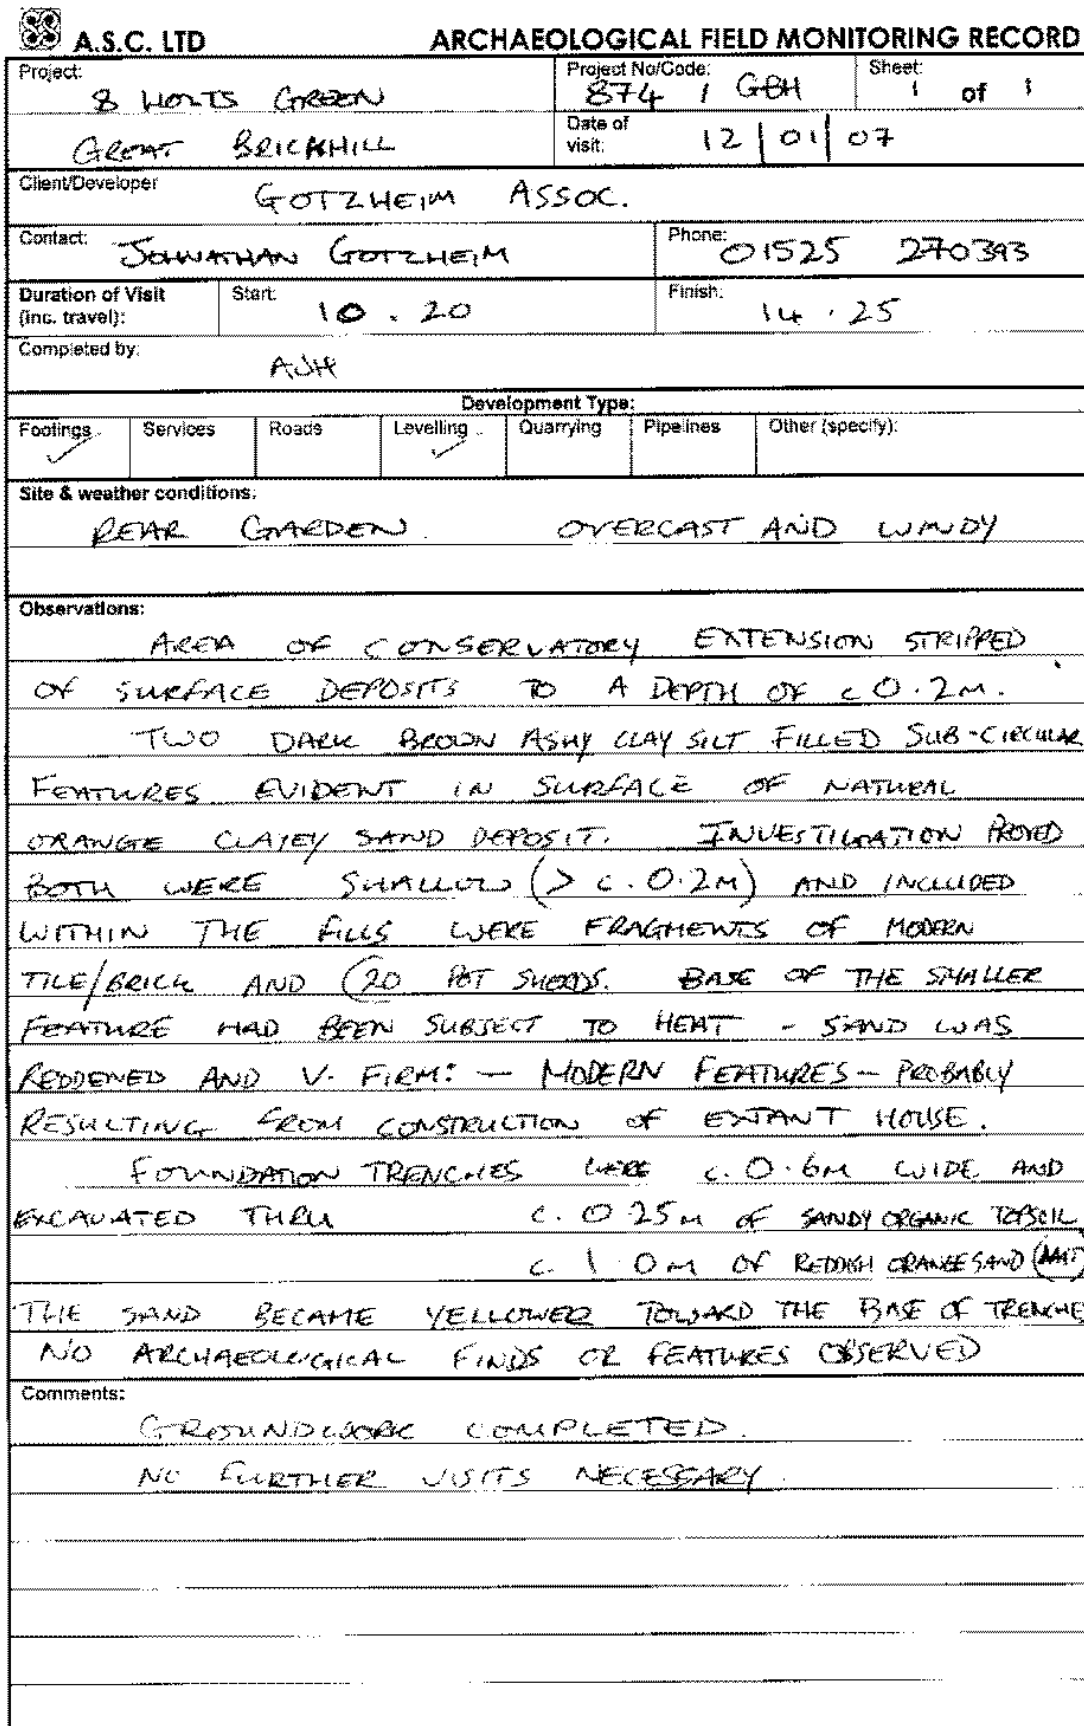 A.S.C. LTD ARCHAEOLOGICAL FIELD MONITORING RECORD
Project: 8 HOLTS GREEN
GREAT BRICKHILL
Project No/Code: 874 / GBH
Sheet: 1 of 1
Date of visit: 12 | 01 | 07
Client/Developer GOTZHEIM ASSOC.
Contact: JOHNATHAN GOTZHEIM
Phone: 01525 270393
Duration of Visit (inc. travel):
Start: 10.20
Finish: 14.25
Completed by: AJH
Development Type:
Footings ✓ Services Roads Levelling ✓ Quarrying Pipelines Other (specify):
Site & weather conditions:
REAR GARDEN OVERCAST AND WINDY
Observations:
AREA OF CONSERVATORY EXTENSION STRIPPED
OF SURFACE DEPOSITS TO A DEPTH OF c 0.2M.
TWO DARK BROWN ASHY CLAY SILT FILLED SUB-CIRCULAR
FEATURES EVIDENT IN SURFACE OF NATURAL
ORANGE CLAYEY SAND DEPOSIT. INVESTIGATION PROVED
BOTH WERE SHALLOW (> c. 0.2M) AND INCLUDED
WITHIN THE FILLS WERE FRAGMENTS OF MODERN
TILE/BRICK AND C20 POT SHERDS. BASE OF THE SMALLER
FEATURE HAD BEEN SUBJECT TO HEAT - SAND WAS
REDDENED AND V. FIRM: — MODERN FEATURES - PROBABLY
RESULTING FROM CONSTRUCTION OF EXTANT HOUSE.
FOUNDATION TRENCHES WERE c. 0.6M WIDE AND
EXCAVATED THRU c. 0.25M OF SANDY ORGANIC TOPSOIL,
c. 1.0M OF REDDISH ORANGE SAND (NAT)
THE SAND BECAME YELLOWER TOWARD THE BASE OF TRENCHE
NO ARCHAEOLOGICAL FINDS OR FEATURES OBSERVED
Comments:
GROUNDWORK COMPLETED.
NO FURTHER VISITS NECESSARY.